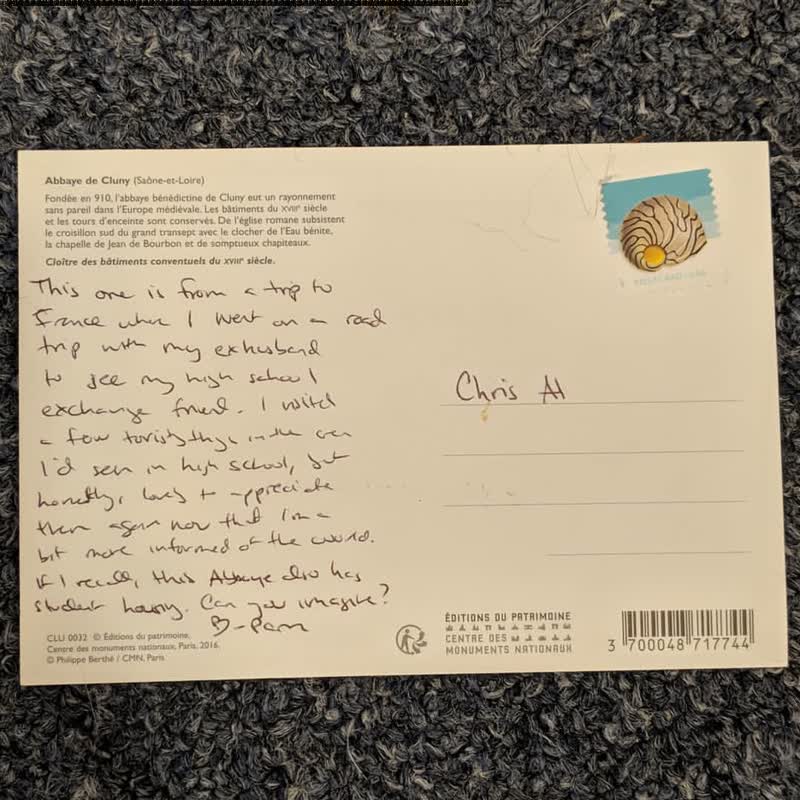 Abbaye de Cluny (Saône-et-Loire)
Fondée en 910, l'abbaye bénédictine de Cluny eut un rayonnement
sans pareil dans l'Europe médiévale. Les bâtiments du XVIIIe siècle
et les tours d'enceinte sont conservés. De l'église romane subsistent
le croisillon sud du grand transept avec le clocher de l'Eau bénite,
la chapelle de Jean de Bourbon et de somptueux chapiteaux.
Cloître des bâtiments conventuels du XVIIIe siècle.
This one is from a trip to
France when I went on a road
trip with my exhusband
to see my high school
exchange friend. I visited
a few touristy things in the area
I'd seen in high school, but
honestly, lovely to appreciate
them again now that I'm a
bit more informed of the world.
If I recall, this Abbaye also has
student housing. Can you imagine?
B-Pam
CLU 0032 © Éditions du patrimoine,
Centre des monuments nationaux, Paris, 2016.
© Philippe Berthé / CMN, Paris
Chris Al
ÉDITIONS DU PATRIMOINE
CENTRE DES
MONUMENTS NATIONAUX
3 700048 717744